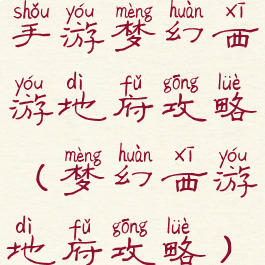 shǒu yóu mèng huàn xī
手游梦幻西
yóu dì fǔ gōng lüè
游地府攻略
mèng huàn xī yóu
（梦幻西游
dì fǔ gōng lüè
地府攻略）